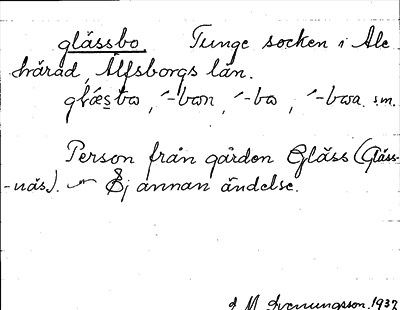 glässbo Tunge socken i Ale
härad, Älfsborgs län.
glǽsbω, ´-bωn, ´-bω, ´-bωa. s.m.
Person från gården Gläss (Gläss-
-näs). — Ej annan ändelse.
J M Svenungsson. 1937